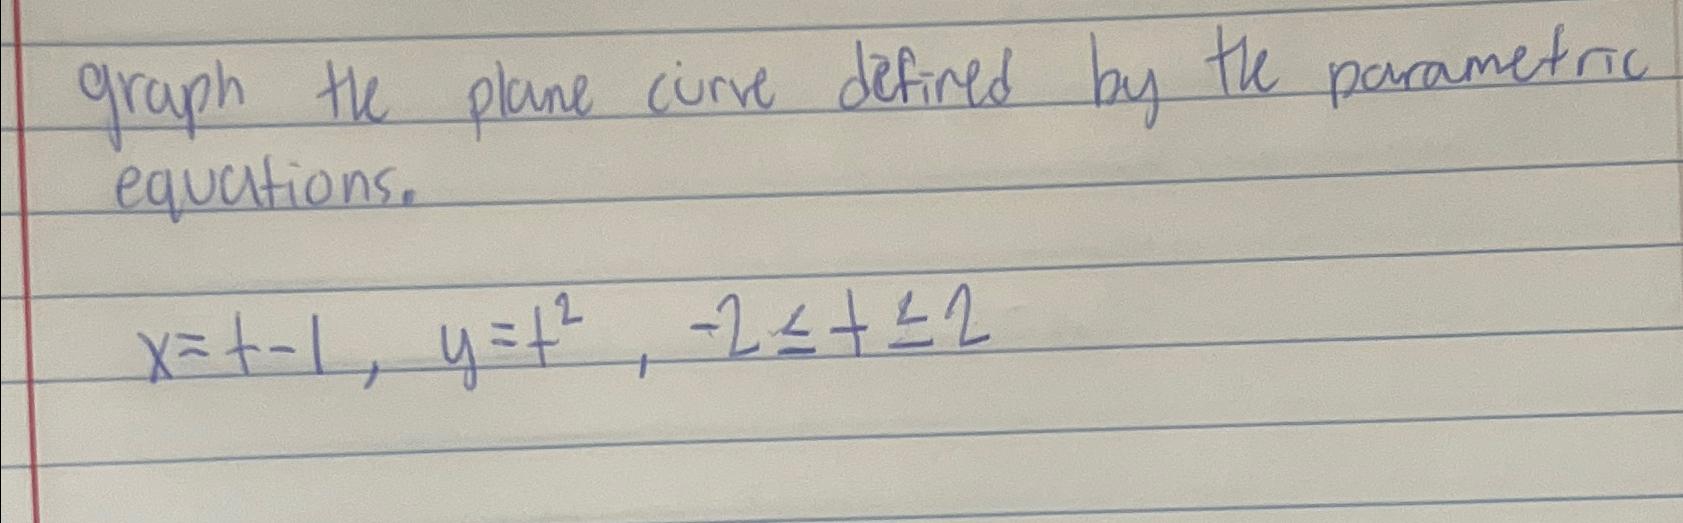 graph the plane curve defined by the parametric
equations.
x=t-1, y=t², -2≤t≤2